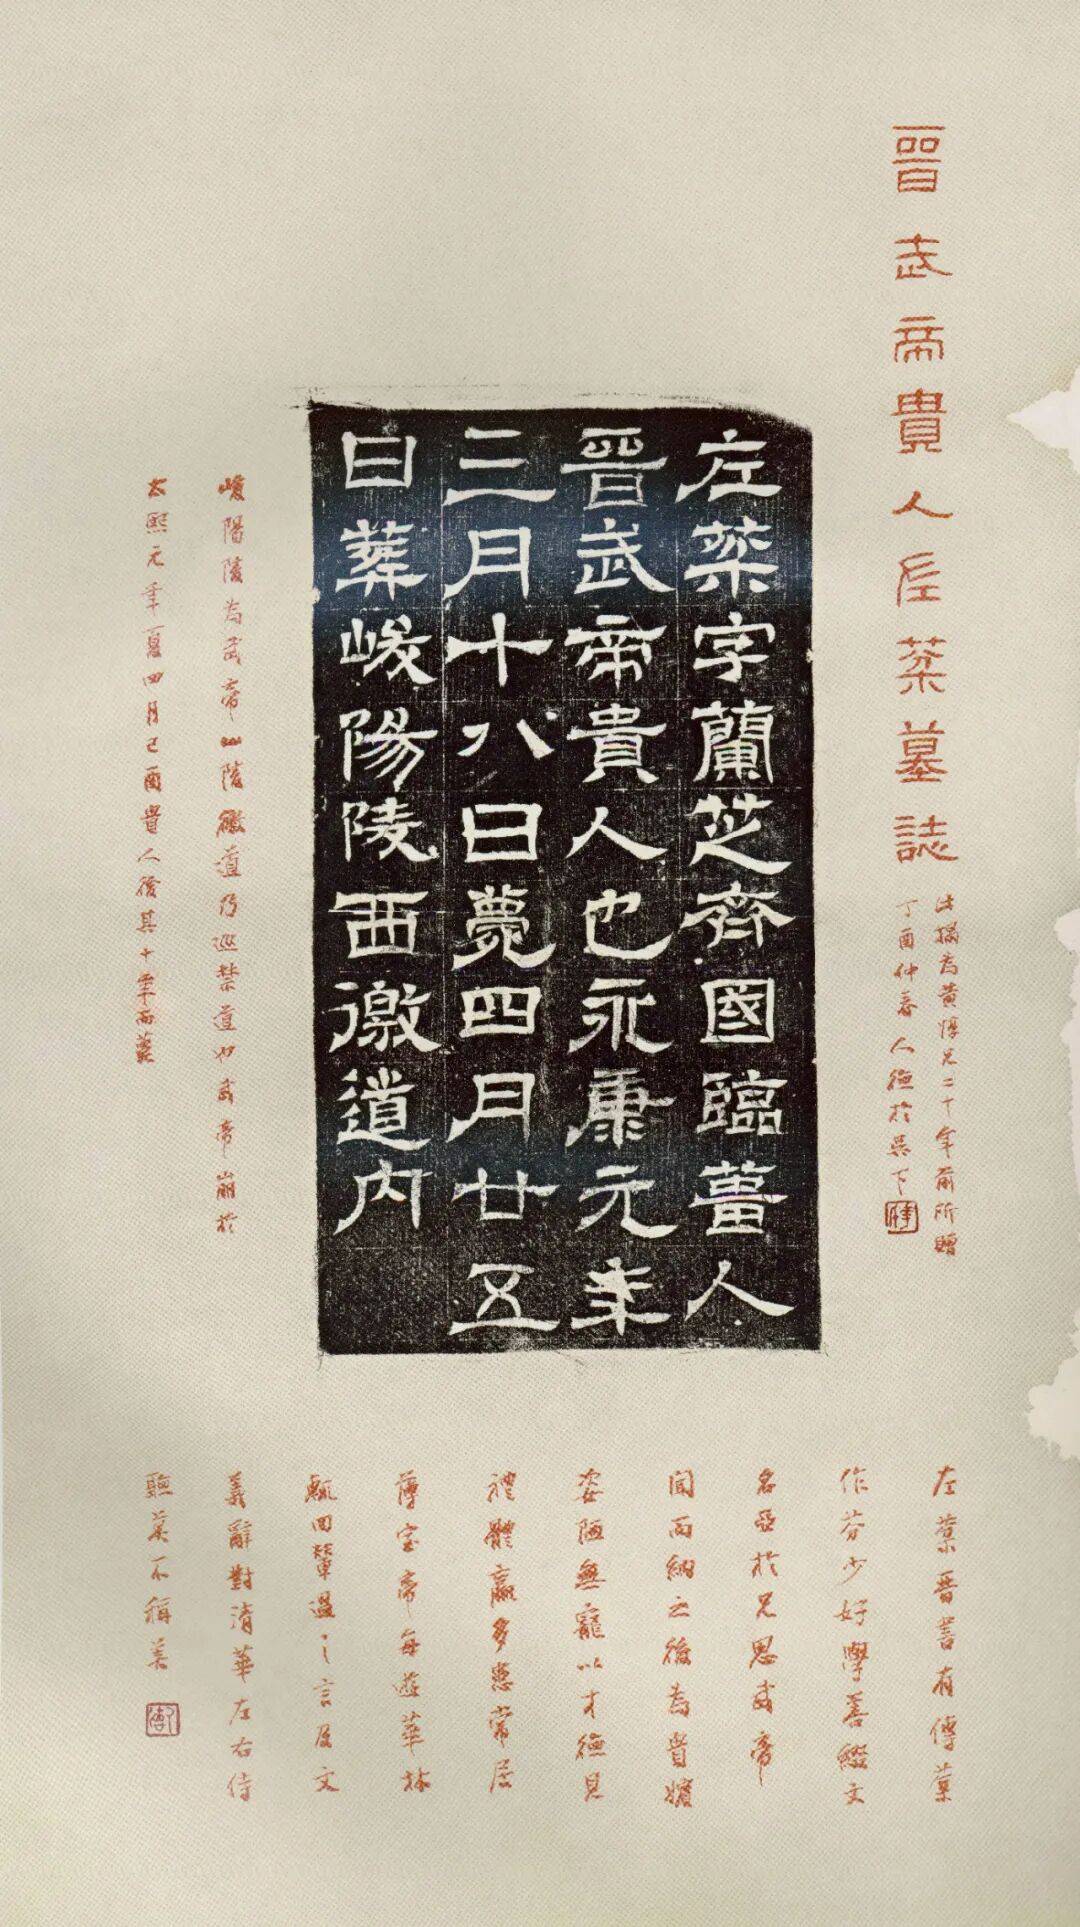 晉武帝貴人左棻墓誌
此搨為黃惇兄二十年前所贈
丁酉仲春人德於吳下
左棻字蘭芝齊國臨菑人
晉武帝貴人也永康元年
三月十八日薨四月廿五
日葬峻陽陵西徼道內
峻陽陵為武帝山陵徼道乃巡禁道也武帝崩於
太熙元年夏四月己酉貴人後其十年而薨
左棻晉書有傳棻
作芬少好學善綴文
名亞於兄思武帝
聞而納之後為貴嬪
姿陋無寵以才德見
禮體羸多患常居
薄室帝每遊華林
輒回輦過之言及文
義辭對清華左右侍
聽莫不稱美